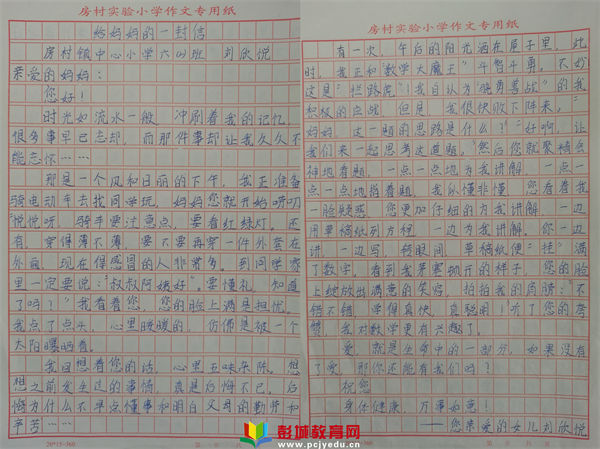 房村实验小学作文专用纸
给妈妈的一封信
房村镇中心小学六(4)班 刘欣悦
亲爱的妈妈:
您好!
时光如流水一般,冲刷着我的记忆,
很多事早已忘却,而那件事却让我久久不
能忘怀……
那是一个风和日丽的下午,我正准备
骑电动车去找同学玩,妈妈您就开始唠叨
"悦悦呀,骑车要注意点,要看红绿灯。还
有,穿得薄不薄,要不要再穿一件外套在
外面,现在得感冒的人非常多。到同学家
里一定要说:'叔叔阿姨好'。要懂礼,知道
了吗?"我看着您,您的脸上满是担忧。
我点了点头,心里暖暖的,仿佛是被一个
太阳曝晒着。
我回想着您的话,心里五味杂陈。想
想之前发生过的事情,真是后悔不已。后
悔为什么不早点懂事和明白父母的勤劳和
辛苦……
20*15=300
房村实验小学作文专用纸
有一次,午后的阳光洒在屋子里,此
时,我正和"数学大魔王"斗智斗勇。不妙
这是"拦路虎"!我自认为"骁勇善战"的我
积极的应战,但是,我很快败下阵来,"
妈妈,这一题的思路是什么?""好啊,让
我们来一起思考这道题。"然后您就聚精会
神地看题,一点一点地为我讲解,一点一
点一点地指着题,我似懂非懂,您看着我
一脸疑惑,您更加仔细的为我讲解,一边
用草稿纸列方程,一边为我讲解。你一边
讲,一边写,转眼间,草稿纸便"挂"满
了数字。看到我茅塞顿开的样子,您的脸
上绽放出满意的笑容,拍拍我的肩膀:"不
错不错,学得真快,真聪明!"听了您的夸
赞,我对数学更有兴趣了。
爱,就是生命中的一部分,如果没有
了爱,那你还能有我们吗?
祝您
身体健康,万事如意!
——您亲爱的女儿刘欣悦
彭城教育网
www.pcjyedu.cn